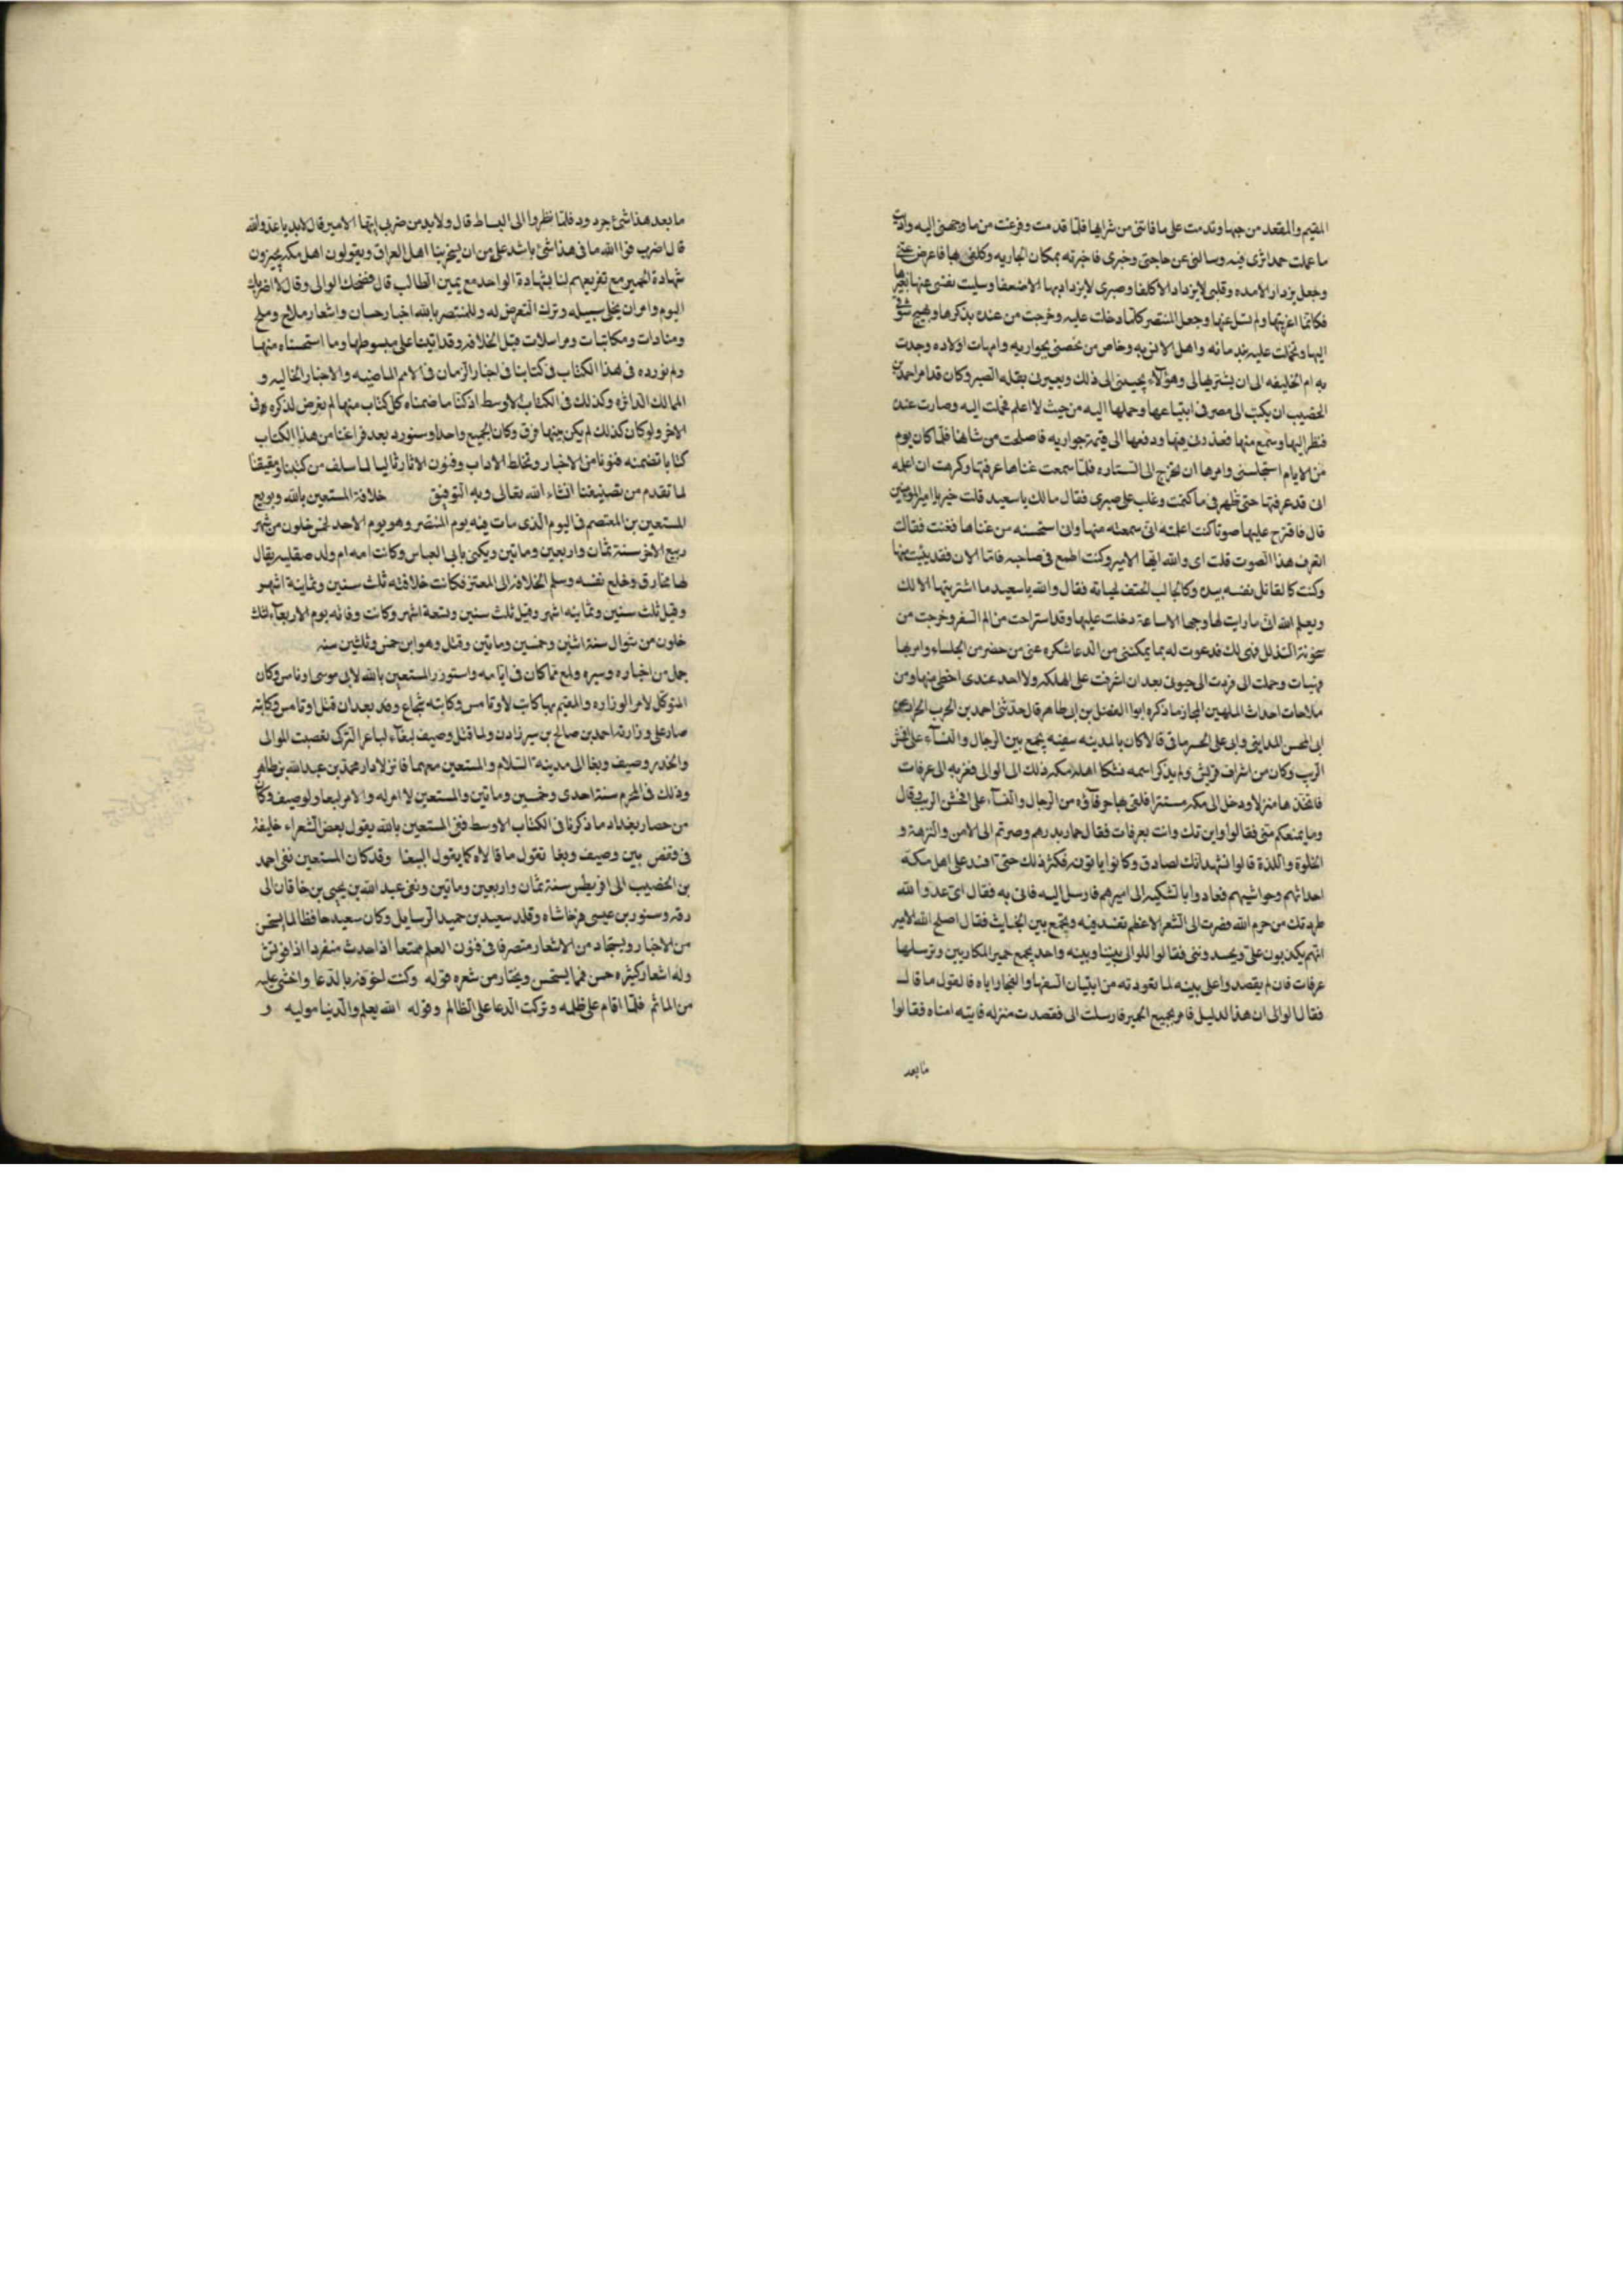 المقيم والمقعد من حبها وندمت على ما فاتنى من شرايها فلما قدمت وفرغت من ما وجهنى اليه وادت
ما عملت حمد اثرى فيه وسالنى عن حاجتى وخبرى فاخبرته بمكان الجاريه وكلفى بها فاعرض عنى
وجعل يزداد الامده وقلبى لا يزداد الا كلفا وصبرى لا يزداد بها الا ضعفا وسليت نفسى عنها بغيرها
فكانما اغريتها ولم تسل عنها وجعل المنتصر كلما دخلت عليه وخرجت من عنده يذكرها ويهيج شوقى
اليها وتحملت عليه بندمائه واهل الانس به وخاص من يخصنى بجواريه وامهات اولاده وجدت
به ام الخليفه الى ان يشتريها لى وهو لا يجيبنى الى ذلك ويعيرنى بقله الصبر وكان قد امر احمد بن
الخصيب ان يكتب الى مصر فى ابتياعها وحملها اليه من حيث لا اعلم فحملت اليه وصارت عنده
فنظر اليها وسمع منها فعذرنى فيها ودفعها الى قيمة جواريه فاصلحت من شانها فلما كان يوم
من الايام استجلسنى وامرها ان تخرج الى الستاره فلما سمعت غناها عرفتها وكرهت ان اعلمه
انى قد عرفتها حتى ظهر فى ما كتمت وغلب على صبرى فقال مالك يا سعيد قلت خير يا امير المومنين
قال فاقترح عليها صوتا كنت اعلمته انى سمعته منها وانى استحسنه من غناها فغنت فقالت
اتعرف هذا الصوت قلت اى والله ايها الامير وكنت اطمع فى صاحبه فاما الان فقد يئست منها
وكنت كالقاتل نفسه بيده وكالجالب الحتف لحياته فقال والله يا سعيد ما اشتريتها الا لك
ويعلم الله انى ما رايت لها وجها الا ساعة دخلت عليها وقد استراحت من الم السفر وخرجت من
التبذل فهى لك فدعوت له بما يمكننى من الدعا شكره عنى من حضر من الجلساء وامر بها
فهيات وحملت الى فردت الى حيوتى بعد ان اشرفت على الهلكه ولا احد عندى احظى منها ومن
ملاحات احداث الملهين المجاز ما ذكره ابو الفضل بن ابى طاهر قال حدثنى احمد بن الحرث
ابى الحسن المداينى وابى على الحرمازى قالا كان بالمدينه سفيه يجمع بين الرجال والنسآء على افحش
الريب وكان من اشراف قريش ولم يذكر اسمه فشكا اهل مكه ذلك الى الوالى فغربه الى عرفات
فاتخذها منزلا ودخل الى مكه مستترا فلقى بها حرفآؤه من الرجال والنسآء على افحش الريب وقال
وما يمنعكم منى فقالوا واين تك وانت بعرفات فقال حمار بدرهم وصرتم الى الامن والنزهة و
الخلوة واللذة قالوا نشهد انك لصادق وكانوا ياتونه فكثر ذلك حتى افسد على اهل مكة
احداثهم وحواشيهم فعادوا بالشكيه الى اميرهم فارسل اليه فاتى به فقال اى عدوا الله
طردتك من حرم الله فصرت الى المشعر الاعظم تفسد فيه وتجمع بين الخبايث فقال اصلح الله الامير
انهم يكذبون على ويحسدوننى فقالوا للوالى بيننا وبينه واحد يجمع حمير المكاريين وترسلها
عرفات فان لم يقصدوا على بيته لما تعودته من اتيان السفها والفجار اياه فالقول ما قال
فقال الوالى ان هذا لدليل فامر بجميع الحمير فارسلت الى فقصدت منزله فاتيته امناه فقالوا
ما بعد
ما بعد هذا شئ جردوه فلما نظروا الى السياط قال ولا بد من ضربى ايها الامير قال لا بد يا عدو الله
قال اضرب فوالله ما فى هذا شئ باشد على من ان يسخر بنا اهل العراق ويقولون اهل مكه يجيزون
شهادة الحمير مع تقريعهم لنا بشهادة الواحد مع يمين الطالب قال فضحك الوالى وقال لا اضربك
اليوم وامر ان يخلى سبيله وترك التعرض له وللمنتصر بالله اخبار حسان واشعار ملاح وملح
ومنادات ومكاتبات ومراسلات قبل الخلافه وقد اتينا على مبسوطها وما استحسناه منها
ولم نورده فى هذا الكتاب فى كتابنا فى اخبار الزمان فى الامم الماضيه والاخبار الخاليه و
الممالك الداثره وكذلك فى الكتاب الاوسط اذ كنا ما ضمناه كل كتاب منها لم نعرض لذكره فى
الاخر ولو كان كذلك لم يكن بينها فرق وكان الجميع واحدا وسنورد بعد فراغنا من هذا الكتاب
كتابا تضمنه فنونا من الاخبار وتخاط الاداب وفنون الاثار تاليا لما سلف من كتبنا وتحقيقنا
لما تقدم من تصنيفنا انشاء الله تعالى وبه التوفيق خلافة المستعين بالله وبويع
المستعين بن المعتصم فى اليوم الذى مات فيه يوم المنتصر وهو يوم الاحد لخمس خلون من شهر
ربيع الاخر سنة ثمان واربعين وماتين ويكنى بابى العباس وكانت امه ام ولد صقليه يقال
لها مخارق وخلع نفسه وسلم الخلافه الى المعتز فكانت خلافته ثلث سنين وثمانية اشهر
وقيل ثلث سنين وثمانيه اشهر وقيل ثلث سنين وتسعة اشهر وكانت وفاته يوم الاربعآء لثلث
خلون من شوال سنة اثنين وخمسين وماتين وقتل وهو ابن خمس وثلثين سنه
جمل من اخباره وسيره ولمع مما كان فى ايامه واستوزر المستعين بالله لابى موسى اوتامس وكان
المتوكل لامر الوزاره والمقيم بها كاتب لاوتامس وكابته شجاع وقد بعد ان قتل اوتامس وكاتبه
صار على وزارته احمد بن صالح بن سيرزادن ولما قتل وصيف لبغآء لباعر التركى تعصبت الموالى
وانحدر وصيف وبغا الى مدينة السلام والمستعين معهما فانزلا دار محمد بن عبد الله بن طاهر
وذلك فى المحرم سنة احدى وخمسين وماتين والمستعين لا امر له والامر لبغا ولوصيف وكان
من حصار بغداد ما ذكرنا فى الكتاب الاوسط ففى المستعين بالله يقول بعض الشعراء خليفة
فى وقفص بين وصيف وبغا تقول ما قالاه كما يقول الببغا وقد كان المستعين نفى احمد
بن الخصيب الى اقريطس سنة ثمان واربعين وماتين ونفى عبيد الله بن يحيى بن خاقان الى
رقه وستور بن عيسى فرخاشاه وقلد سعيد بن حميد الرسايل وكان سعيد حافظا لما يستحسن
من الاخبار ويستجاد من الاشعار متصرفا فى فنون العلم ممتعا اذا حدث منفردا اذا فوتش
وله اشعار كثيره حسن فمما يستحسن ويختار من شعره قوله وكنت اخوفه بالدعا واخشى عليه
من الماثم فلما اقام على ظلمه وتركت الدعا على الظالم وقوله الله يعلم والدنيا موليه و